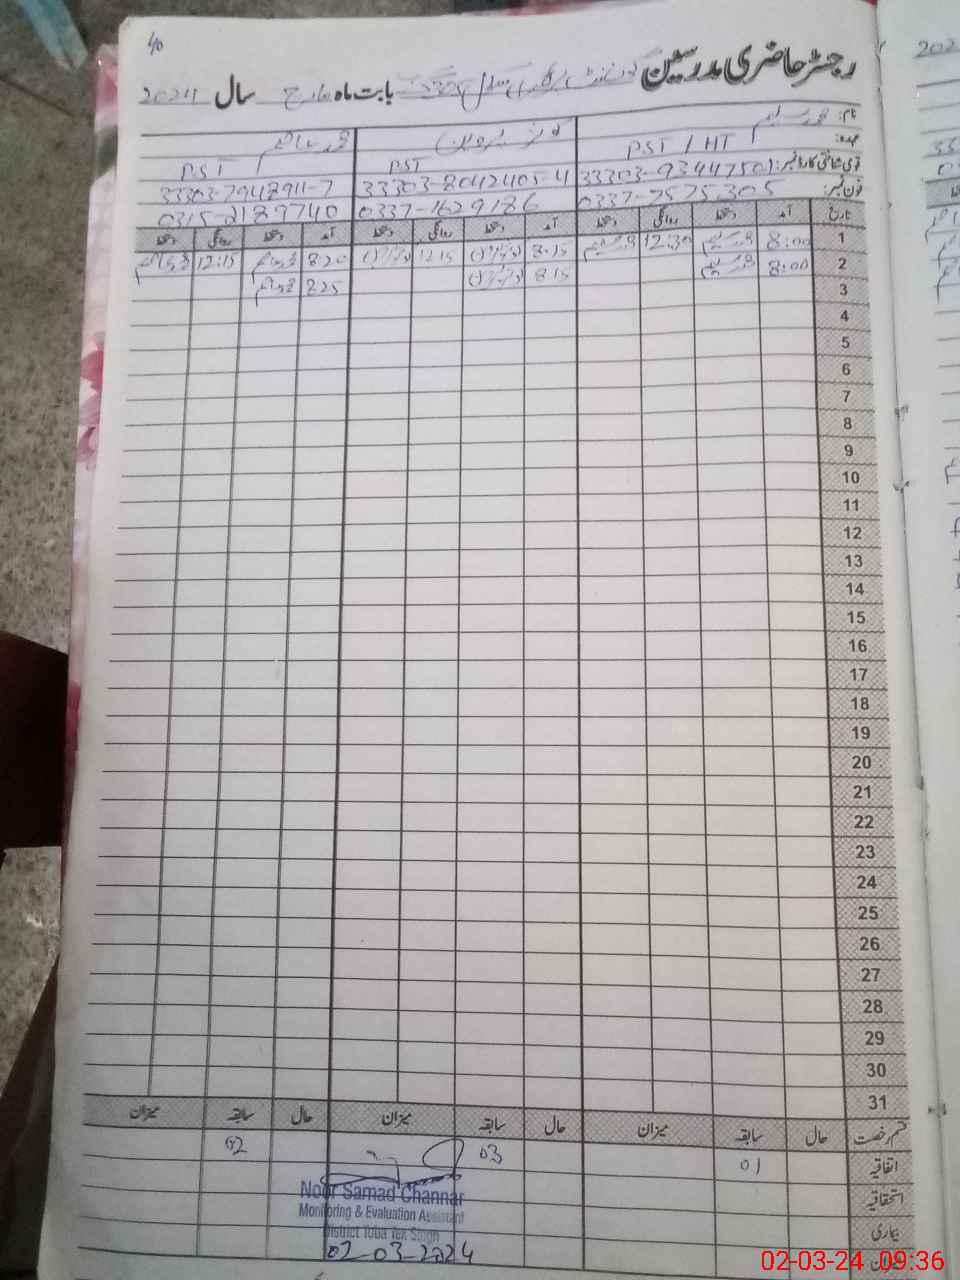 40
رجسٹر حاضری مدرسین گورنمنٹ پرائمری سکول بابت ماہ مارچ سال 2024
نام: محمد سلیم
عہدہ: PST / HT PST PST
قومی شناختی کارڈ نمبر: 33303-9344750 33303-8042405-4 33303-7948911-7
فون نمبر: 0337-7575305 0337-1629186 0315-2189740
تاریخ آمد دستخط روانگی دستخط آمد دستخط روانگی دستخط آمد دستخط روانگی دستخط
1 8:00 محمد سلیم 12:30 محمد سلیم 8:15 12:15 8:20 12:15
2 8:00 محمد سلیم 8:15 8:25
3
4
5
6
7
8
9
10
11
12
13
14
15
16
17
18
19
20
21
22
23
24
25
26
27
28
29
30
31
قسم رخصت حال سابقہ میزان حال سابقہ میزان حال سابقہ میزان
اتفاقیہ 01 03 02
استحقاقیہ
بیماری
میزان
Noor Samad Channar
Monitoring & Evaluation Assistant
District Toba Tek Singh
02-03-2024
02-03-24 09:36